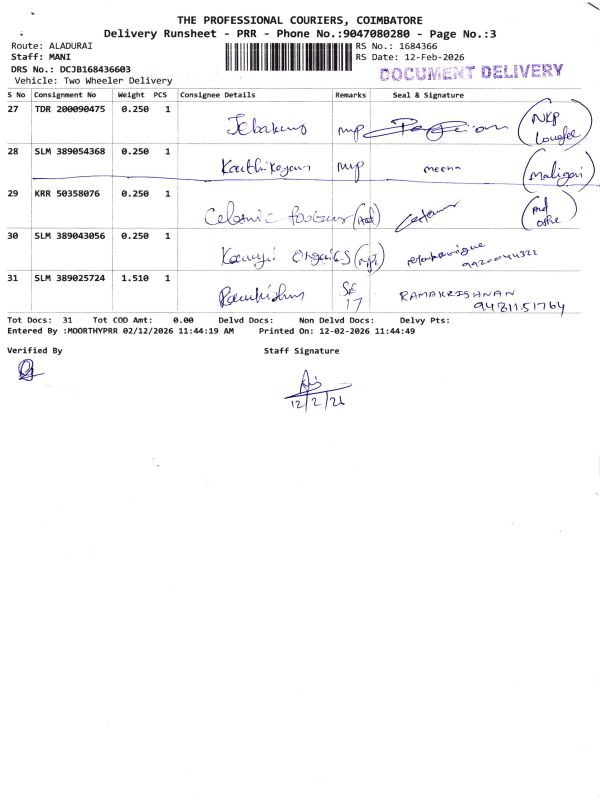 THE PROFESSIONAL COURIERS, COIMBATORE
Delivery Runsheet - PRR - Phone No.:9047080280 - Page No.:3
Route: ALADURAI
Staff: MANI
DRS No.: DCJB168436603
Vehicle: Two Wheeler Delivery
RS No.: 1684366
RS Date: 12-Feb-2026
DOCUMENT DELIVERY
S No Consignment No Weight PCS Consignee Details Remarks Seal & Signature
27 TDR 200090475 0.250 1 NKP
28 SLM 389054368 0.250 1 Karthikeyan meena
29 KRR 50358076 0.250 1
30 SLM 389043056 0.250 1
9920044322
31 SLM 389025724 1.510 1 Ramkrishna 17 RAMAKRISHNAN
9481151764
Tot Docs: 31 Tot COD Amt: 0.00 Delvd Docs: Non Delvd Docs: Delvy Pts:
Entered By :MOORTHYPRR 02/12/2026 11:44:19 AM Printed On: 12-02-2026 11:44:49
Verified By Staff Signature
12/2/26